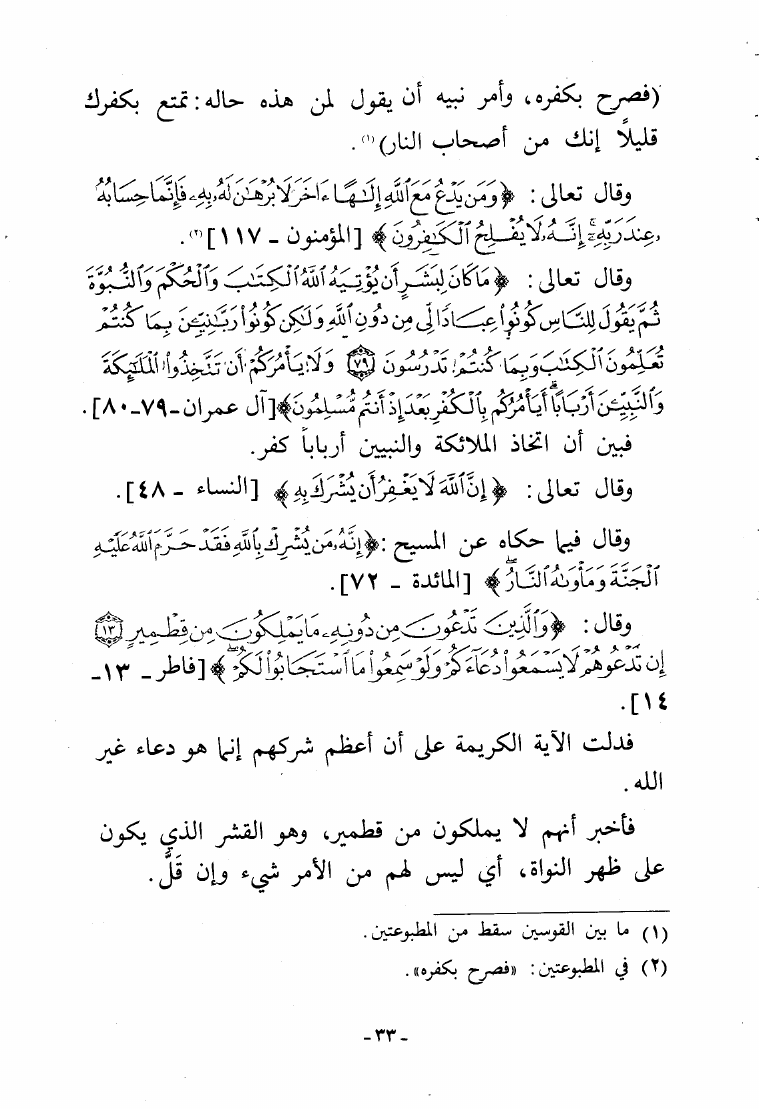 (فصرح بكفره، وأمر نبيه أن يقول لمن هذه حاله: تمتع بكفرك
قليلاً إنك من أصحاب النار)(١).
وقال تعالى: ﴿وَمَن يَدْعُ مَعَ ٱللَّهِ إِلَـٰهًا ءَاخَرَ لَا بُرْهَـٰنَ لَهُۥ بِهِۦ فَإِنَّمَا حِسَابُهُۥ
عِندَ رَبِّهِۦٓ إِنَّهُۥ لَا يُفْلِحُ ٱلْكَـٰفِرُونَ﴾ [المؤمنون ـ ١١٧](٢).
وقال تعالى: ﴿مَا كَانَ لِبَشَرٍ أَن يُؤْتِيَهُ ٱللَّهُ ٱلْكِتَـٰبَ وَٱلْحُكْمَ وَٱلنُّبُوَّةَ
ثُمَّ يَقُولَ لِلنَّاسِ كُونُوا۟ عِبَادًا لِّى مِن دُونِ ٱللَّهِ وَلَـٰكِن كُونُوا۟ رَبَّـٰنِيِّـۧنَ بِمَا كُنتُمْ
تُعَلِّمُونَ ٱلْكِتَـٰبَ وَبِمَا كُنتُمْ تَدْرُسُونَ ٧٩ وَلَا يَأْمُرَكُمْ أَن تَتَّخِذُوا۟ ٱلْمَلَـٰٓئِكَةَ
وَٱلنَّبِيِّـۧنَ أَرْبَابًا ۗ أَيَأْمُرُكُم بِٱلْكُفْرِ بَعْدَ إِذْ أَنتُم مُّسْلِمُونَ﴾ [آل عمران ـ ٧٩ ـ ٨٠].
فبين أن اتخاذ الملائكة والنبيين أرباباً كفر.
وقال تعالى: ﴿إِنَّ ٱللَّهَ لَا يَغْفِرُ أَن يُشْرَكَ بِهِ﴾ [النساء ـ ٤٨].
وقال فيما حكاه عن المسيح: ﴿إِنَّهُۥ مَن يُشْرِكْ بِٱللَّهِ فَقَدْ حَرَّمَ ٱللَّهُ عَلَيْهِ
ٱلْجَنَّةَ وَمَأْوَىٰهُ ٱلنَّارُ ۖ﴾ [المائدة ـ ٧٢].
وقال: ﴿وَٱلَّذِينَ تَدْعُونَ مِن دُونِهِۦ مَا يَمْلِكُونَ مِن قِطْمِيرٍ ١٣
إِن تَدْعُوهُمْ لَا يَسْمَعُوا۟ دُعَآءَكُمْ وَلَوْ سَمِعُوا۟ مَا ٱسْتَجَابُوا۟ لَكُمْ ۖ﴾ [فاطر ـ ١٣ ـ
١٤].
فدلت الآية الكريمة على أن أعظم شركهم إنما هو دعاء غير
الله.
فأخبر أنهم لا يملكون من قطمير، وهو القشر الذي يكون
على ظهر النواة، أي ليس لهم من الأمر شيء وإن قَلَّ.
(١) ما بين القوسين سقط من المطبوعتين.
(٢) في المطبوعتين: «فصرح بكفره».
- ٣٣ -